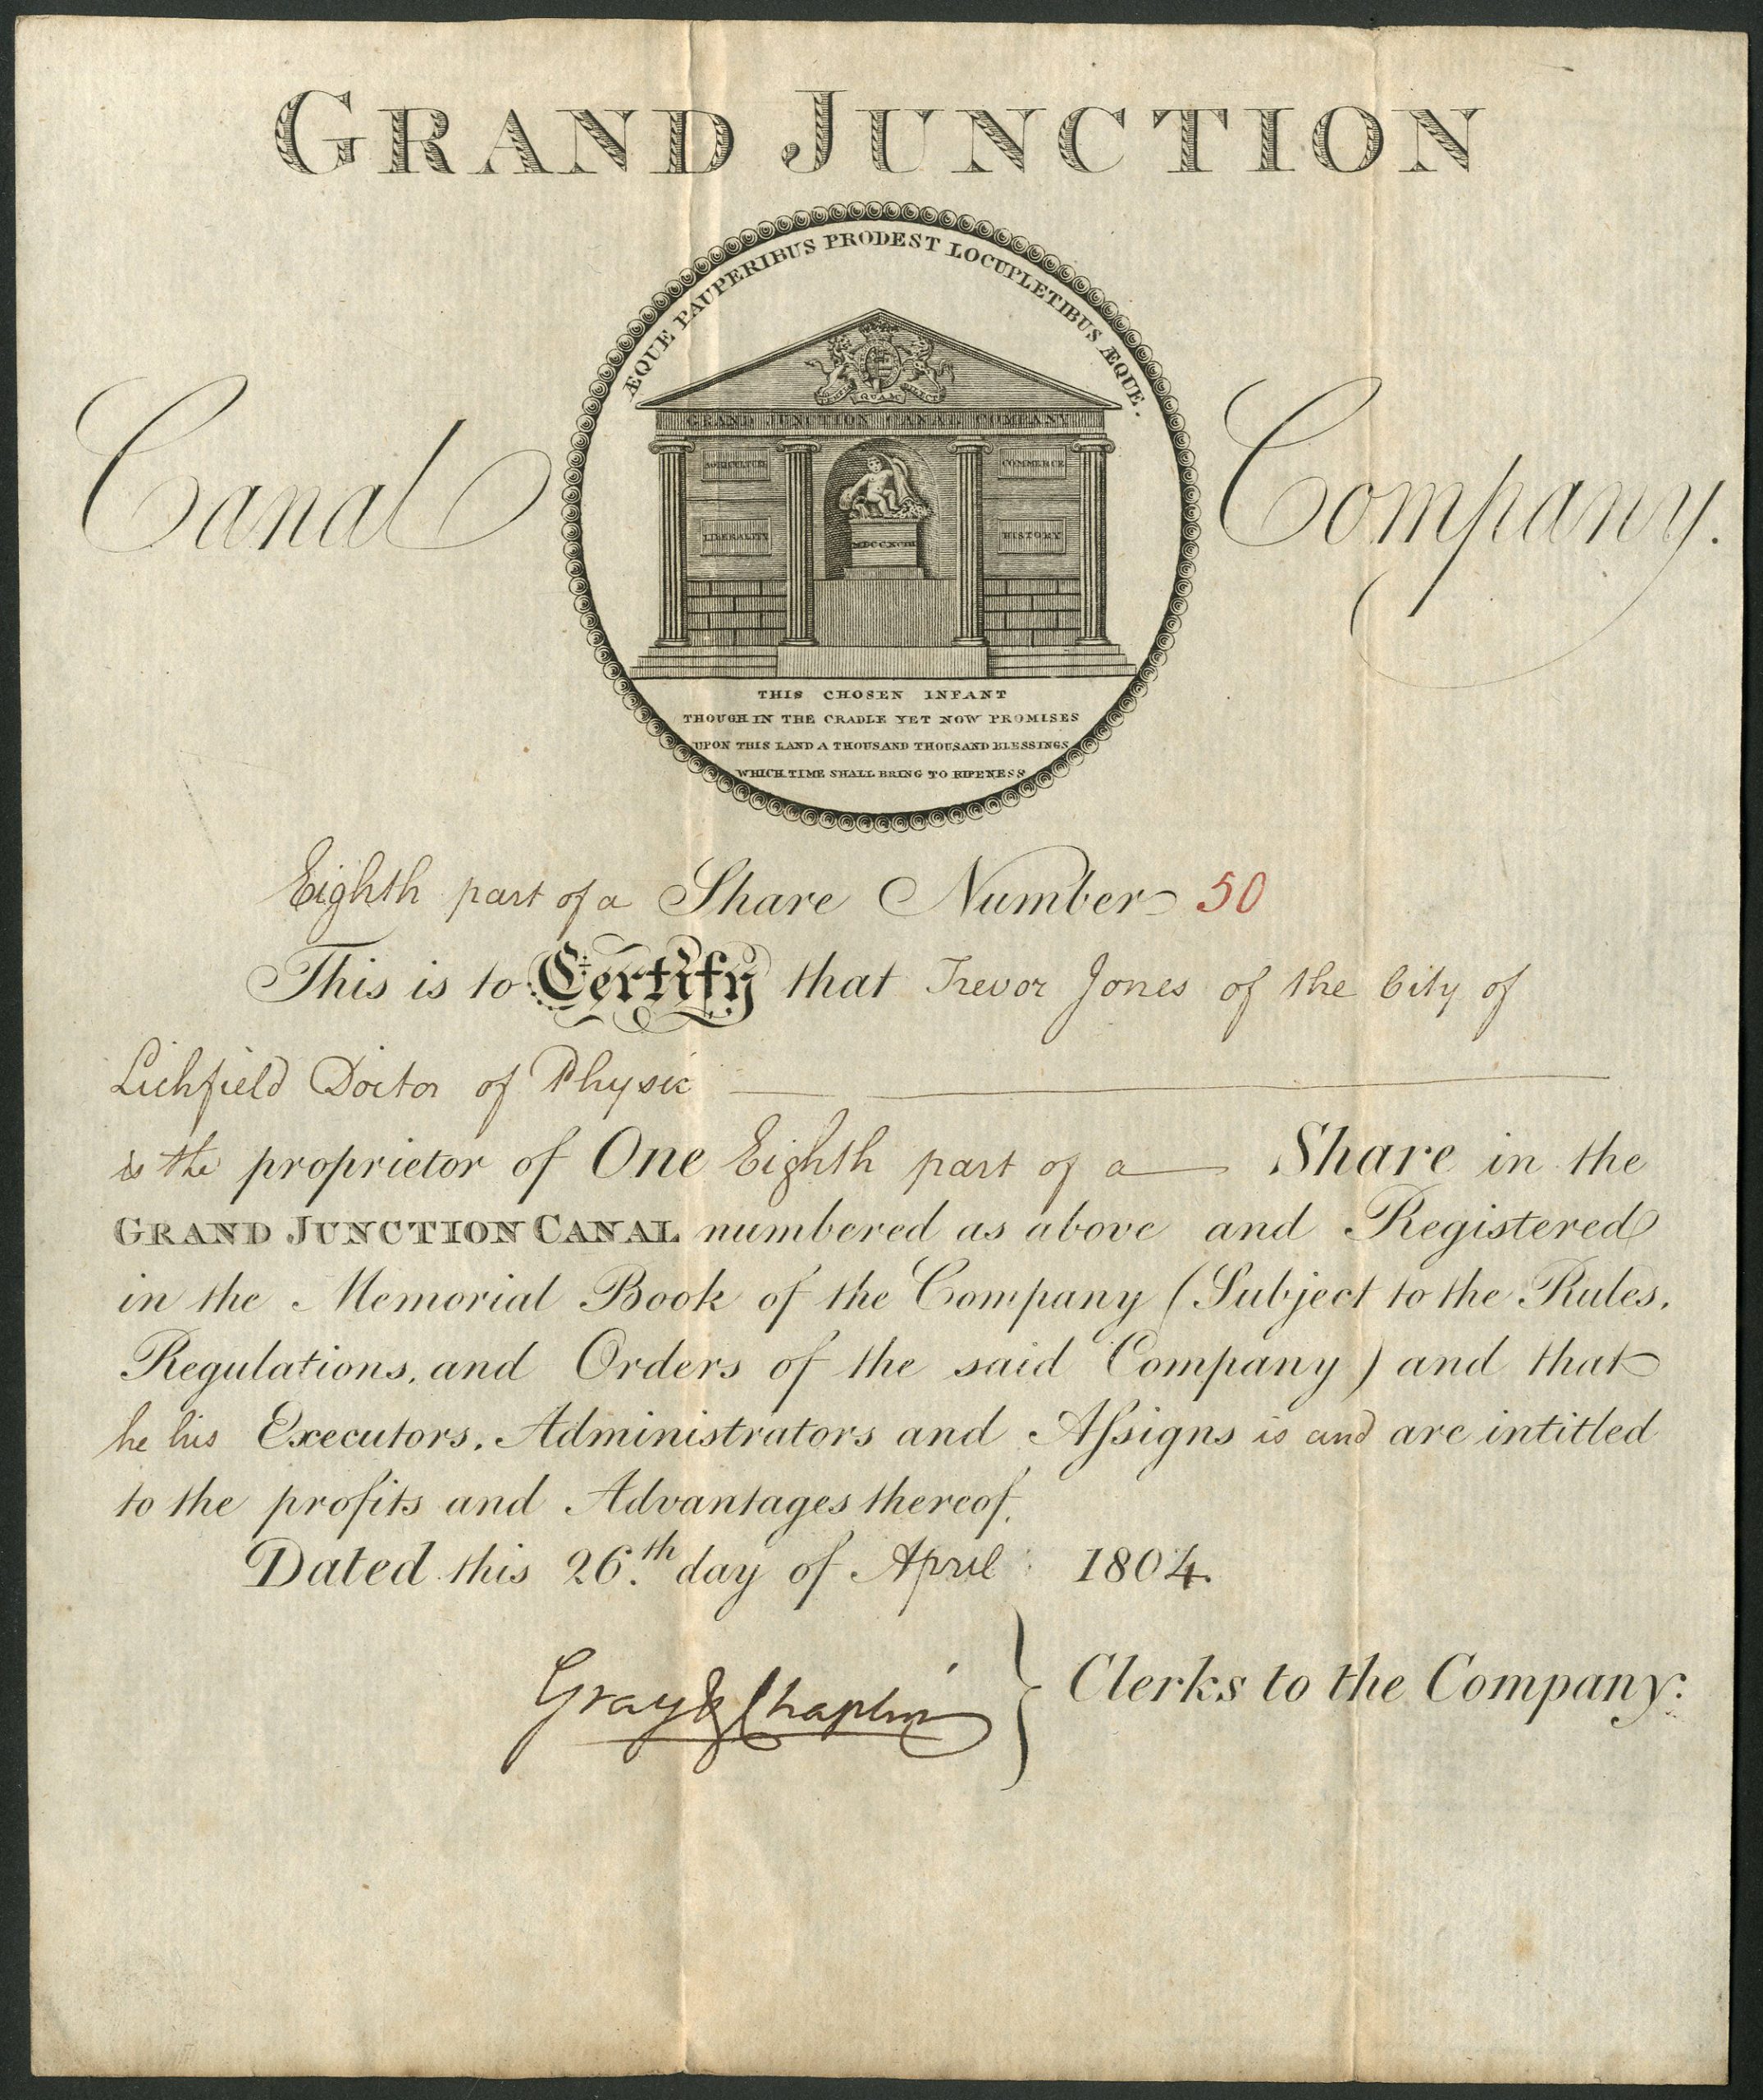 GRAND JUNCTION
ÆQUE PAUPERIBUS PRODEST LOCUPLETIBUS ÆQUE.
Canal Company.
QUAM
GRAND JUNCTION CANAL COMPANY
AGRICULTURE COMMERCE
LIBERALITY MDCCXCIII HISTORY
THIS CHOSEN INFANT
THOUGH IN THE CRADLE YET NOW PROMISES
UPON THIS LAND A THOUSAND THOUSAND BLESSINGS
WHICH TIME SHALL BRING TO RIPENESS
Eighth part of a Share Number 50
This is to Certify that Trevor Jones of the City of
Lichfield Doctor of Physic
is the proprietor of One Eighth part of a Share in the
GRAND JUNCTION CANAL numbered as above and Registered
in the Memorial Book of the Company (Subject to the Rules,
Regulations, and Orders of the said Company) and that
he his Executors, Administrators and Aſsigns is and are intitled
to the profits and Advantages thereof.
Dated this 26.th day of April 1804.
Gray & Chaplin } Clerks to the Company.